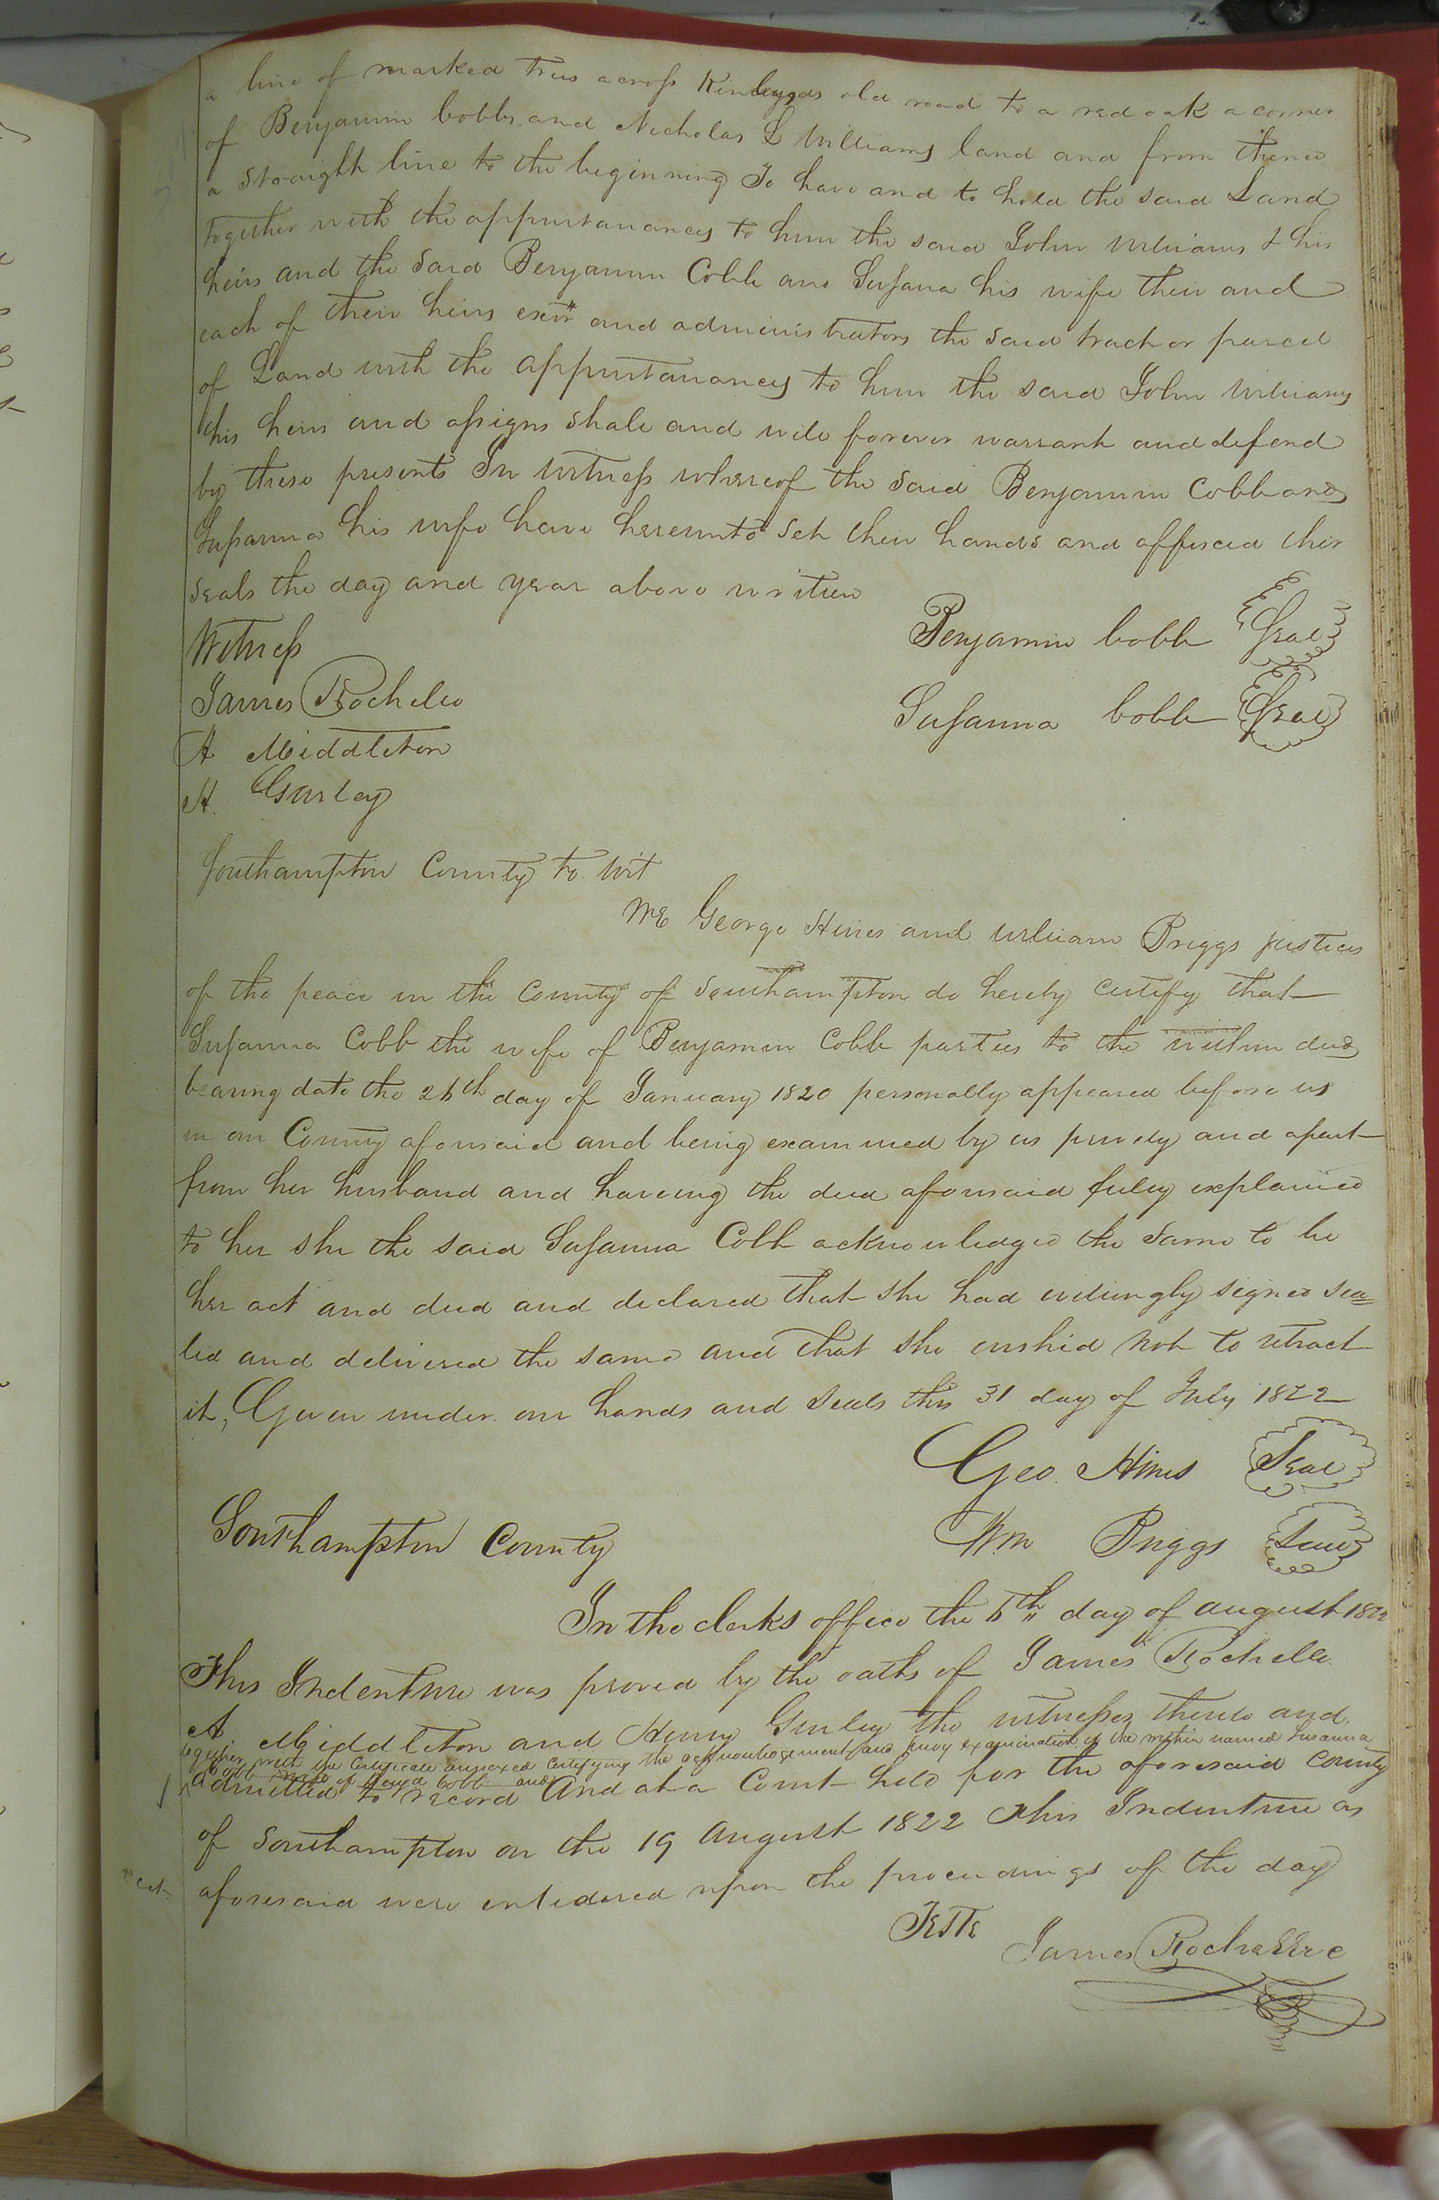 a line of marked trees across old road to a red oak a corner
of Benjamin Cobbs and Nicholas L Williams land and from thence
a straight line to the beginning To have and to hold the said Land
together with the appurtanances to him the said John Williams & his
heirs and the said Benjamin Cobb and Susana his wife their and
each of their heirs exrs and administrators the said tract or parcel
of Land with the appurtanances to him the said John Williams
his heirs and assigns shall and will forever warrant and defend
by these presents In Witness whereof the said Benjamin Cobb and
Susanna his wife have hereunto set their hands and affixed their
seals the day and year above written
Witness
Benjamin Cobb Seal
James Rochelle
Susanna Cobb Seal
A Middleton
H. Gurley
Southampton County to wit
We George Hines and William Briggs justices
of the peace in the County of Southampton do hereby certify that
Susanna Cobb the wife of Benjamin Cobb parties to the within deed
bearing date the 26th day of January 1820 personally appeared before us
in our County aforesaid and being examined by us privily and apart
from her husband and haveing the deed aforesaid fully explained
to her she the said Susanna Cobb acknowledged the same to be
her act and deed and declared that she had willingly signed sea=
led and delivered the same and that she wishid not to retract
it, Given under our hands and seals this 31 day of July 1822
Geo. Hines Seal
Southampton County
Wm Briggs Seal
In the clerks office the 6th day of august 1822
This Indenture was proved by the oaths of James Rochelle
A Middleton and Henry Gurley the witnesses thereto and
together with the Certificate annexed Certifying the acknowledgement and privy examination of the within named Susanna
Cobb wife of Benja Cobb and
admitted to record And at a Court held for the aforesaid County
of Southampton on the 19 august 1822 This Indenture as
aforesaid were entedered upon the proceedings of the day
Teste
James Rochelle